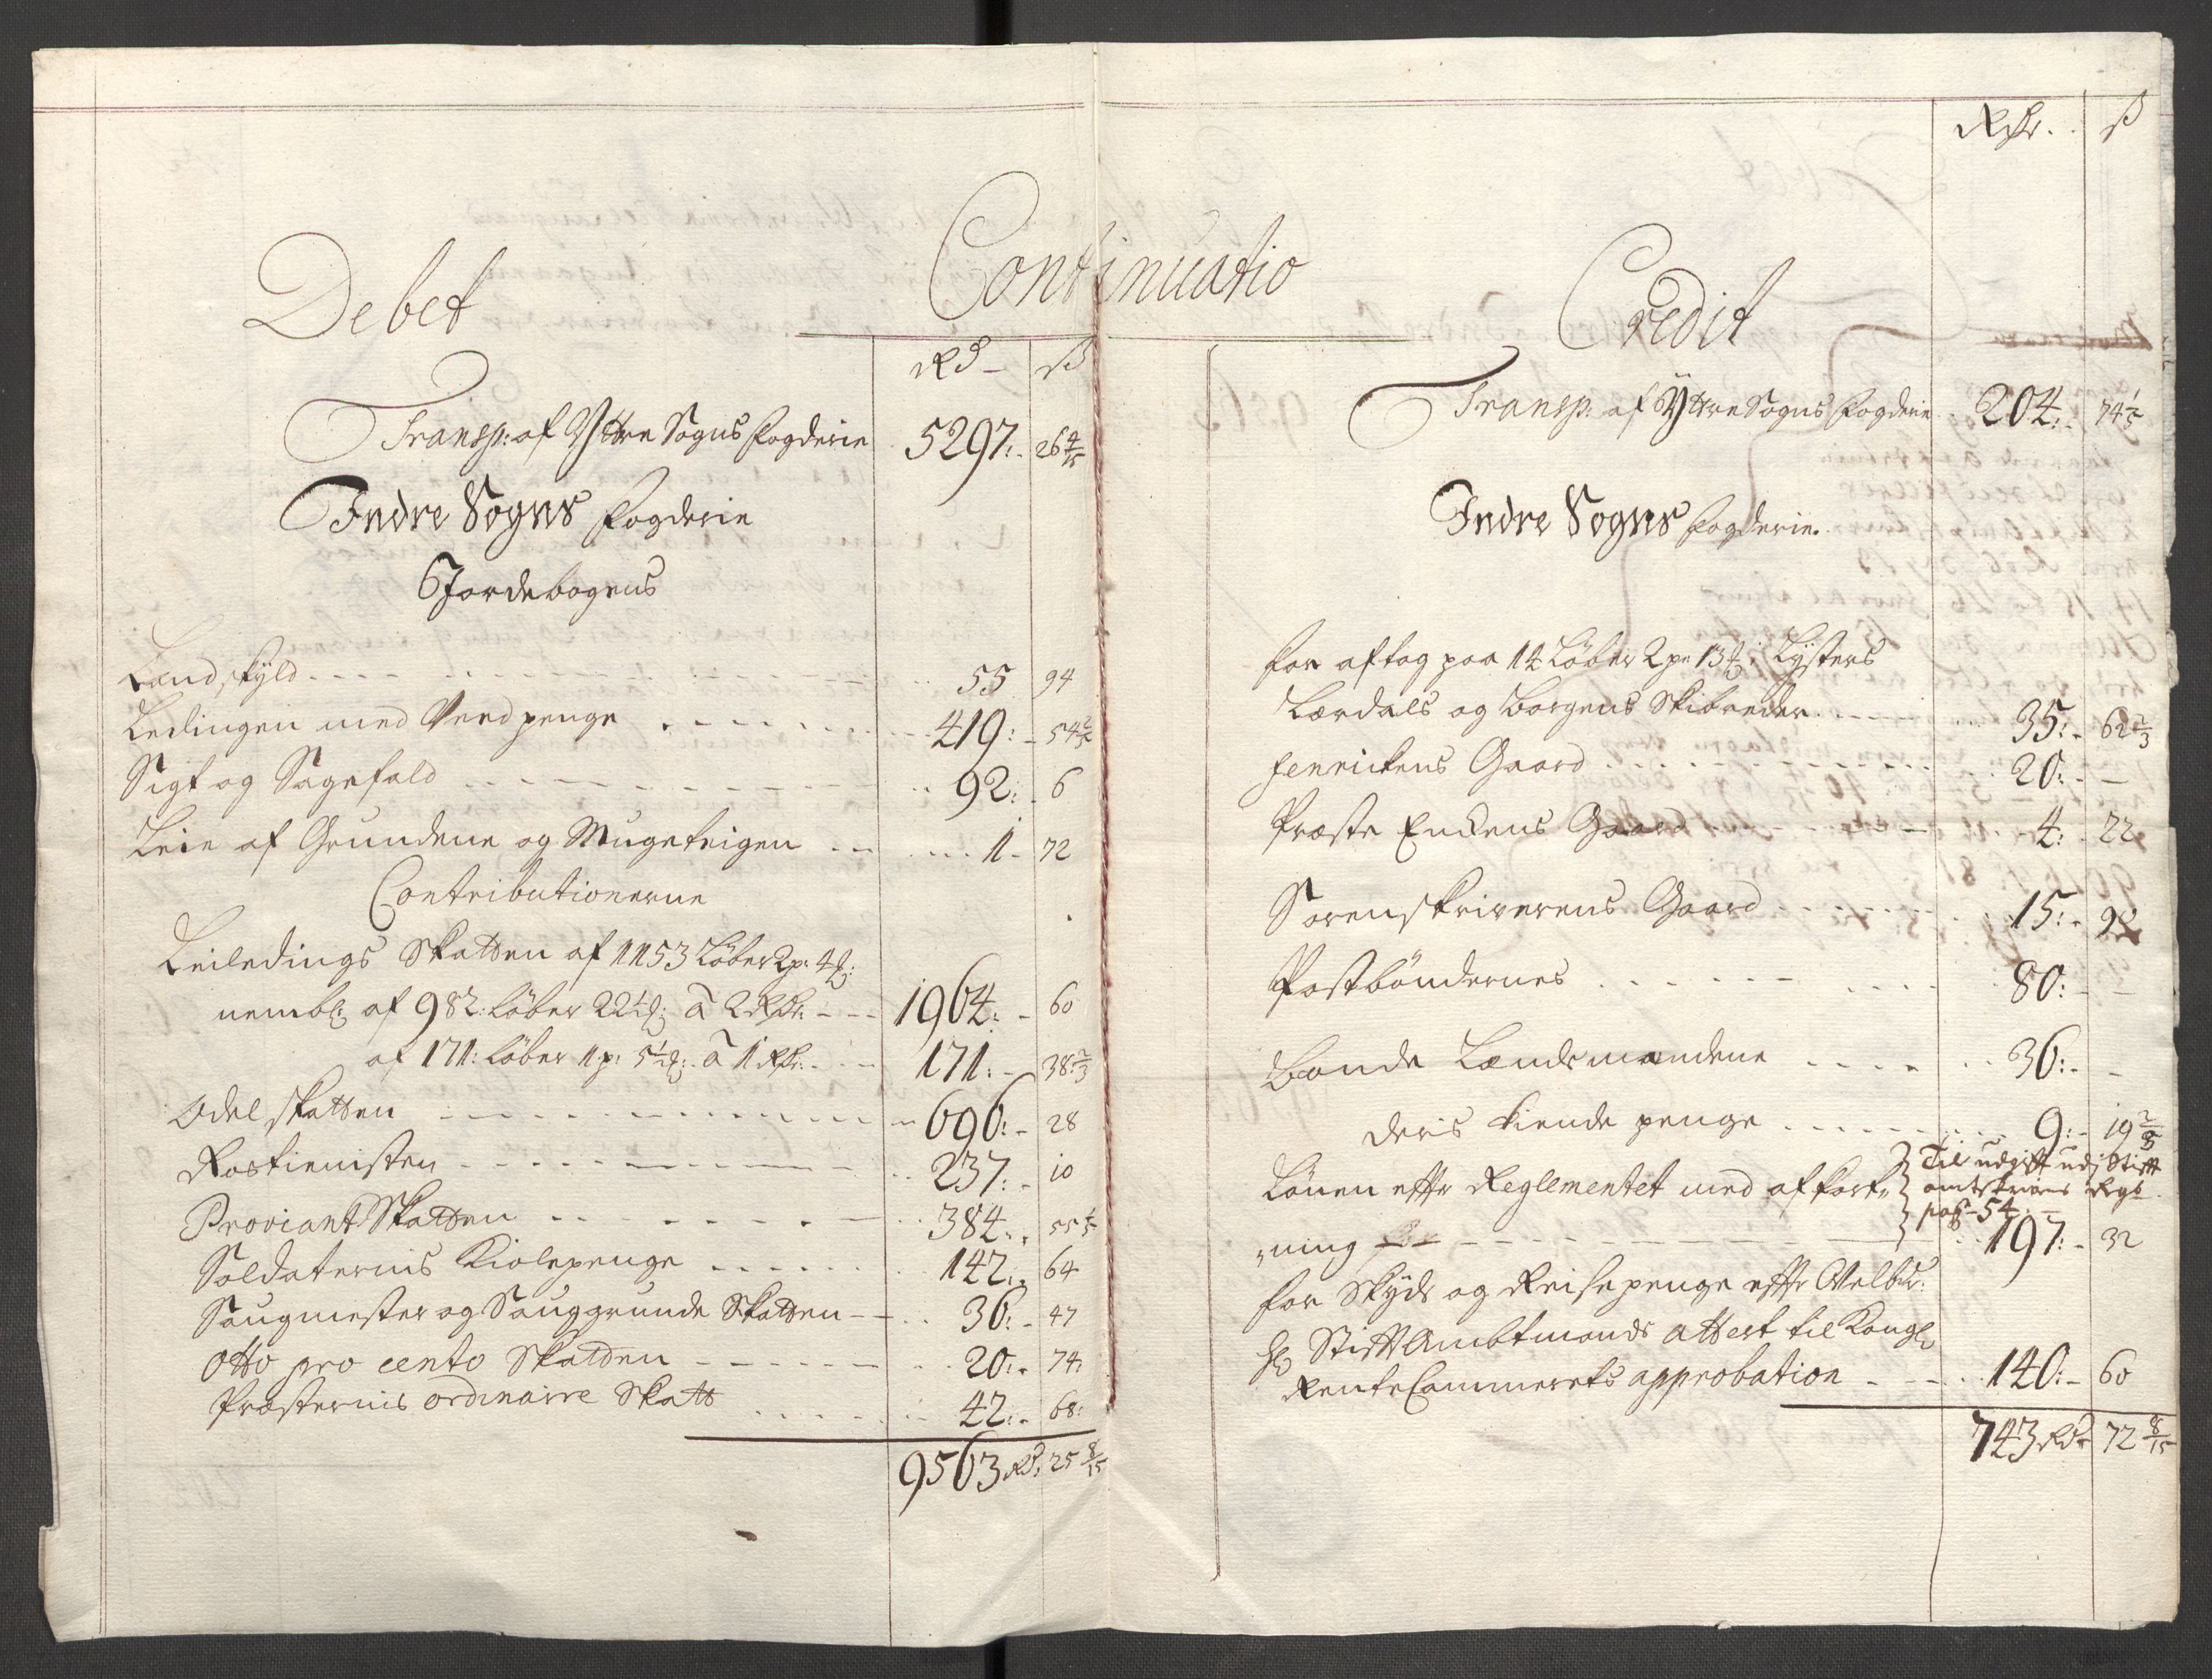 Debet
Continuatio
Rd – ß
Transp: af Yttre Sogns Fogderie 5297:- 26 4/15
Indre Sogns Fogderie
Jordebogens
Landskyld 55 94
Ledingen med Vendpenge 419:- 54 2/5
Sigt og Sagefald 92:- 6
Leie af Grundene og Mugeteigen 1- 72
Contributionerne
Leiledings Skatten af 1153 Løber 2 p: 4
nembl: af 982: Løber 22 1/2 a 2 Rdr: 1964:- 60
af 171: Løber 1 p: 5 1/2 a 1 Rdr: 171:- 38 2/3
Odelskatten 696:- 28
Rostienisten 237:- 10
Proviant Skatten 384:- 55 1/5
Soldaternis Kiolepenge 142:- 64
Saugmester og Sauggrunde Skatten 36:- 47
Otto pro cento Skatten 20:- 74:
Præsternis ordinaire Skatt 42:- 68:
9563 Rd: 25 8/15
Rdr. ß
Credit
Transp: af Yttre Sogns Fogderie 204:- 74 1/5
Indre Sogns Fogderie.
for aftag paa 14 Løber 2 p 13 i Lysters
Lærdals og Borgens Skibreder 35:- 62 2/3
Henrichens Gaard 20:- –
Præste Enckens Gaard 4:- 22
Sorenskriverens Gaard 15:-
Postbøndernes 80:- –
Bonde Lændsmændene 36:- –
deris tiende penge 9:- 19
Lønen effter Reglementet med afkort-
Til udgift udj Stift
amtskrivers Regb
pag- 54
ning 197:- 32
for Skyds og Reisepenge effter Velbr:
Hr Stiftambtmands attest til Kongl
RenteCammerets approbation 140:- 60
743 Rd- 72 8/15